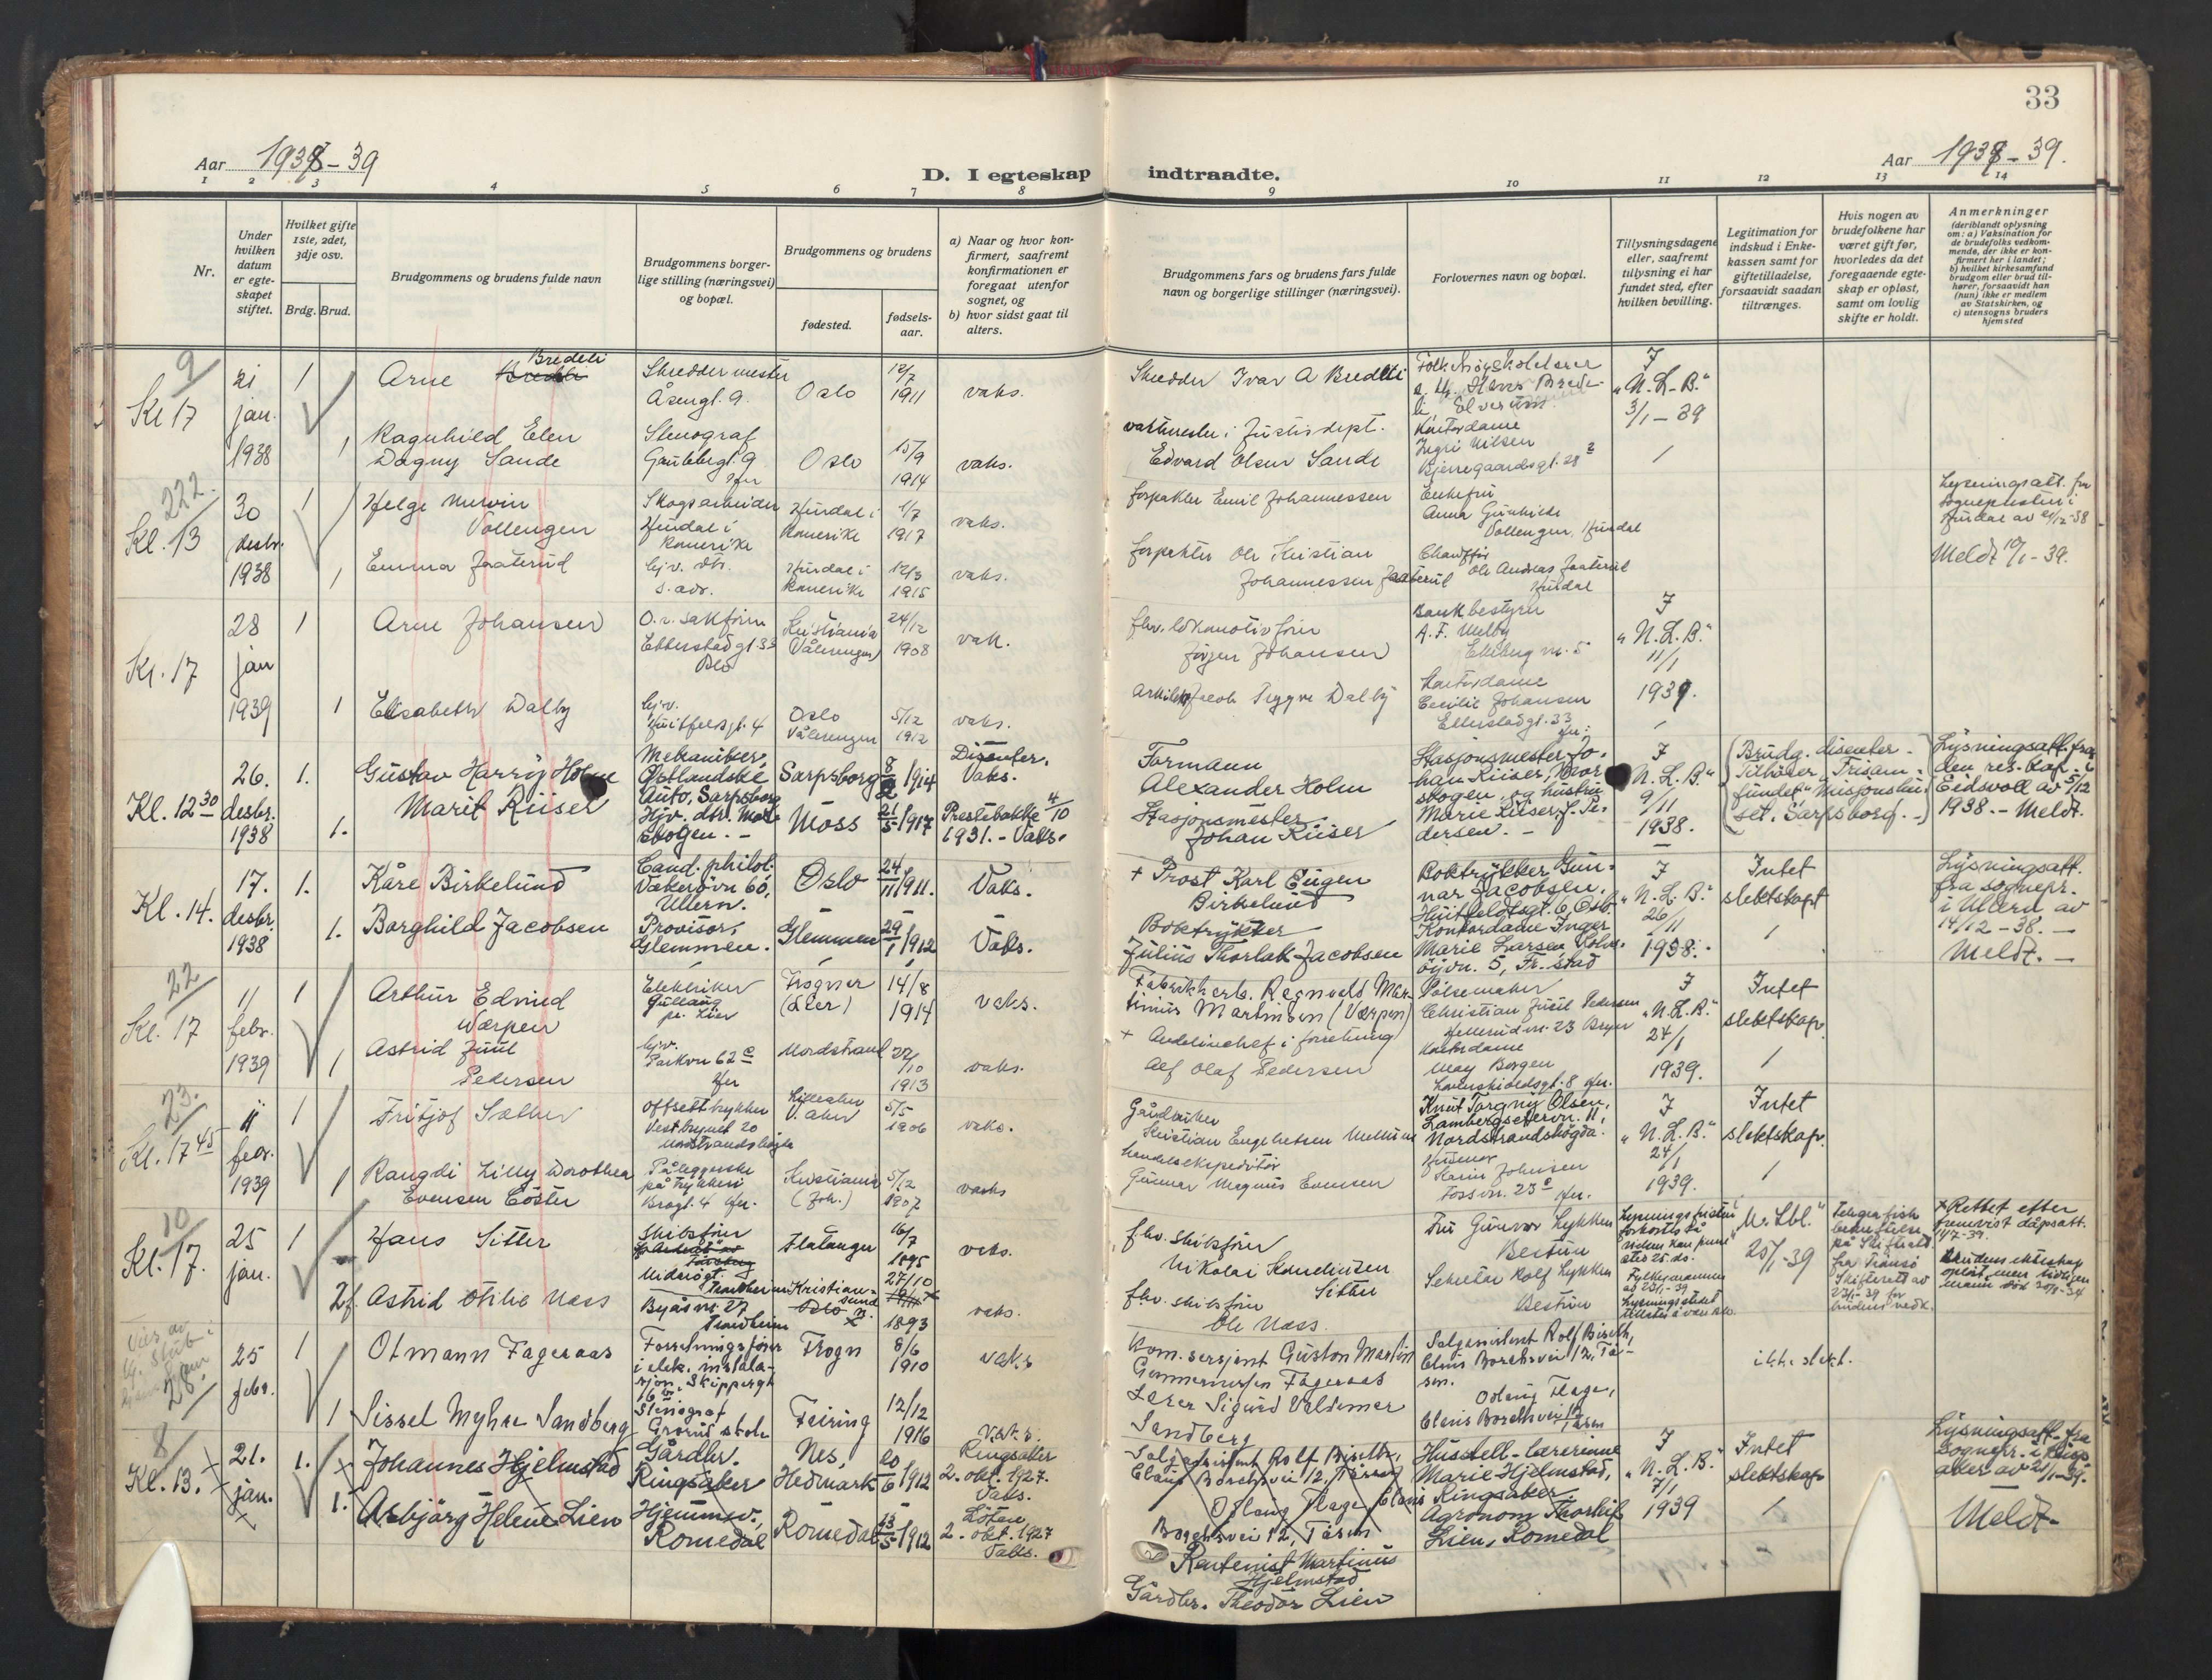 33
Aar 1938-39
D. I egteskap indtraadte.
Aar 1938-39.
1 2 3 4 5 6 7 8 9 10 11 12 13 14
Nr.
Under hvilken datum er egteskapet stiftet.
Hvilket gifte 1ste, 2det, 3dje osv.
Brdg. Brud.
Brudgommens og brudens fulde navn
Brudgommens borgerlige stilling (næringsvei) og bopæl.
Brudgommens og brudens
fødested.
fødselsaar.
a) Naar og hvor konfirmert, saafremt konfirmationen er foregaat utenfor sognet, og
b) hvor sidst gaat til alters.
Brudgommens fars og brudens fars fulde navn og borgerlige stillinger (næringsvei).
Forlovernes navn og bopæl.
Tillysningsdagene eller, saafremt tillysning ei har fundet sted, efter hvilken bevilling.
Legitimation for indskud i Enkekassen samt for giftetilladelse, forsaavidt saadan tiltrænges.
Hvis nogen av brudefolkene har været gift før, hvorledes da det foregaaende egteskap er opløst, samt om lovlig skifte er holdt.
Anmerkninger
(deriblandt oplysning om: a) Vaksination for de brudefolks vedkommende, der ikke er konfirmert her i landet;
b) hvilket kirkesamfund brudgom eller brud tilhører, forsaavidt han (hun) ikke er medlem av Statskirken, og
c) utensogns bruders hjemsted
9
Kl 17
21 jan. 1938
1
Arne Bredeli
Skreddermester
Åsengt. 9.
Oslo
12/7 1911
vaks.
Skredder Ivar A Bredeli
Elverum
"N.L.B."
3/1-39
1
Ragnhild Elen
Dagny Sande
Stenograf
Oslo
15/9 1914
vaks.
vaktmester i Justisdept.
Edvard Olsen Sande
Kontordame
Ingri Nilsen
Bjerregaardsgt. 28
222.
Kl. 13
30 desbr. 1938
1
Helge
Vollengen
Skogsarbeider
Hurdal i Romerike
Hurdal i Romerike
1/7 1917
vaks.
forpakter Emil Johannessen
Enkefru
Anna Gunhilde
Vollengen, Hurdal
Lysningsatt. fra
sognepresten i
Hurdal av 21/12-38
Meldt 10/1-39.
1
Emma Jaaterud
hjv. dtr.
s. adr.
Hurdal i Romerike
12/3 1915
vaks.
forpakter Ole Kristian
Johannessen Jaaterud
Chauffør
Ole Andreas Jaaterud
Hurdal
Kl. 17
28 jan 1939
1
Arne Johansen
O.r. sakfører
Ebberstadgt. 33
Oslo
Kristiania
(Vålerengen)
24/12 1908
vak.
fhv. lokomotivfører
Jørgen Johansen
Bankbestyrer
A. F. Melby
"N.L.B."
11/1
1939.
1
Elisabeth Dalby
hjv.
Huitfeldtsgt. 4
Oslo
Vålerengen
5/12 1912
vaks.
Arkitekt Jacob Trygve Dalby
Kontordame
Cecilie Johansen
Kl. 12 30
26. desbr. 1938
1.
Gustav Harry Holm
Mekaniker,
Østlandske
Auto, Sarpsborg
Sarpsborg
8/2 1914
Disenter.
Vaks.
Formann
Alexander Holm
Stasjonsmester Johan Riiser,
og hustru
Marie Riiser, f. Pedersen. -
"N.L.B."
9/11
1938.
Brudg. disenter -
Tilhører "Trisamfundet" Misjonshuset, Sarpsborg. -
Lysningsatt. fra
den res. kap. i
Eidsvoll av 5/12
1938. - Meldt.
1.
Marit Riiser
Hjv. dtr.
Moss
21/5 1917
Prestebakke 4/10
1931. - Vaks.
Stasjonsmester
Johan Riiser
Kl. 14.
17. desbr. 1938
1.
Kåre Birkelund
Cand. philol.
Vækerøvn 60,
Ullern.
Oslo
24/11 1911.
Vaks.
+ Prost Karl Eugen
Birkelund
Boktrykker Gunnar Jacobsen,
Huitfeldtsgt. 6, Oslo.
"N.L.B."
26/11
1938.
Intet
slektskap
1
Lysningsatt.
fra sognepr.
i Ullern av
14/12-38. -
Meldt. -
1.
Borghild Jacobsen
Provisor,
Glemmen.
Glemmen
29/1 1912
Vaks.
Boktrykker
Julius Thorlak Jacobsen
Kontordame Inger
Marie Larsen
5, Fr.stad
22
Kl. 17
11 febr. 1939
1
Arthur Edvind
Værpen
Elektriker
Gullaug
pr. Lier
Frogner
(Lier)
14/8 1914
vaks.
Fabrikkarb. Regnvald Martinius Martinsen (Værpen)
Pølsemaker
Christian Juul Pedersen
Hellerudvn. 23 Bryn
"N.L.B."
24/1
1939.
Intet
slektskap
1
Astrid Juul
Pedersen
hjv.
Parkvn 62 c
Nordstrand
22/10 1913
vaks.
+ Avdelinchef i forretning
Alf Olaf Pedersen
Kontordame
May Borgen
23.
Kl. 17 45
11 febr. 1939
1
Fritjof Sæther
Offsettrykker
Vestbrynet 20
Nordstrandshøgda
Lillehamer
5/5 1906
vaks.
Gårdbruker
Kristian Engebretsen
Knut Torgny Olsen,
Lambergseter vn. 11,
Nordstrandshøgda.
"N.L.B."
24/1
1939.
Intet
slektskap.
1
Rangdi Lilly Dorothea
Evensen Cöster
Påleggerske
på trykkeri
Kristiania
(Joh.)
5/12 1907
vaks
handelsekspeditør
Gunnar Magnus Evensen
Husmor
Karin Johnsen
Fossvn. 23 c
10
Kl. 17.
25 jan.
1
Hans Sitter
Skibsfører
Trondheim
Flatanger
16/7 1895
vaks.
fhv. skibsfører
Nikolai Kornelinsen
Sitter
Fru Gunvor Lykken
Bestun
25/1-39
Telegrafisk
bekreftelse
på
fra Tromsø
Skifterett av
23/1-39 for
brudens vedk.
+ Rettet efter
fremvist dåpsatt.
1/7-39.
Brudens ekteskap
2 f.
Astrid Otilie Næss
Byåsvn. 27
Trondheim
Kristiansund n.
27/10 1893
vaks.
fhv. skibsfører
Ole Næss.
Sekretær Rolf Lykken
Bestun
28.
25 febr.
1
Otmann Fageraas
Forretningsfører
i elek. instalasjon. Skippergt
16 b.
Frogn
8/6 1910
vaks
Kom. sersjant Guston Martin
Gommernesen Fageraas
Salgsassistent Rolf Biseth,
Claus Borchsvei 12, Tåsen.
ikke slekt.
1
Sissel Myhre Sandberg
Stenograf
Grorud skole
Feiring
12/12 1916
Vaks.
Lærer Sigurd Valdemar
Sandberg
Oslaug Flage,
Claus Borchsvei 12
Tåsen
8
Kl. 13.
21. jan.
1.
Johannes Hjelmstad
Gårdbr.
Ringsaker
Nes,
Hedmark
20/6 1912
Ringsaker
2. okt. 1927.
Vaks.
Salgsassistent Rolf Biseth,
Claus Borchsvei 12, Tåsen
Oslaug Flage, Claus
Borchsvei 12, Tåsen
Husstell-lærerinne
Marie Hjelmstad,
Ringsaker.
"N.L.B."
7/1
1939
Intet
slektskap
1
Lysningsatt. fra
sognepr. i Ringsaker av 21/1-39.
Meldt-
1.
Asbjørg Helene Lien
Hjemmev.,
Romedal
Romedal
23/5 1912
Løten
2. okt. 1927
Vaks.
Rentenist Martinus
Hjelmstad
Gårdbr. Theodor Lien
Agronom Thorleif
Lien, Romedal